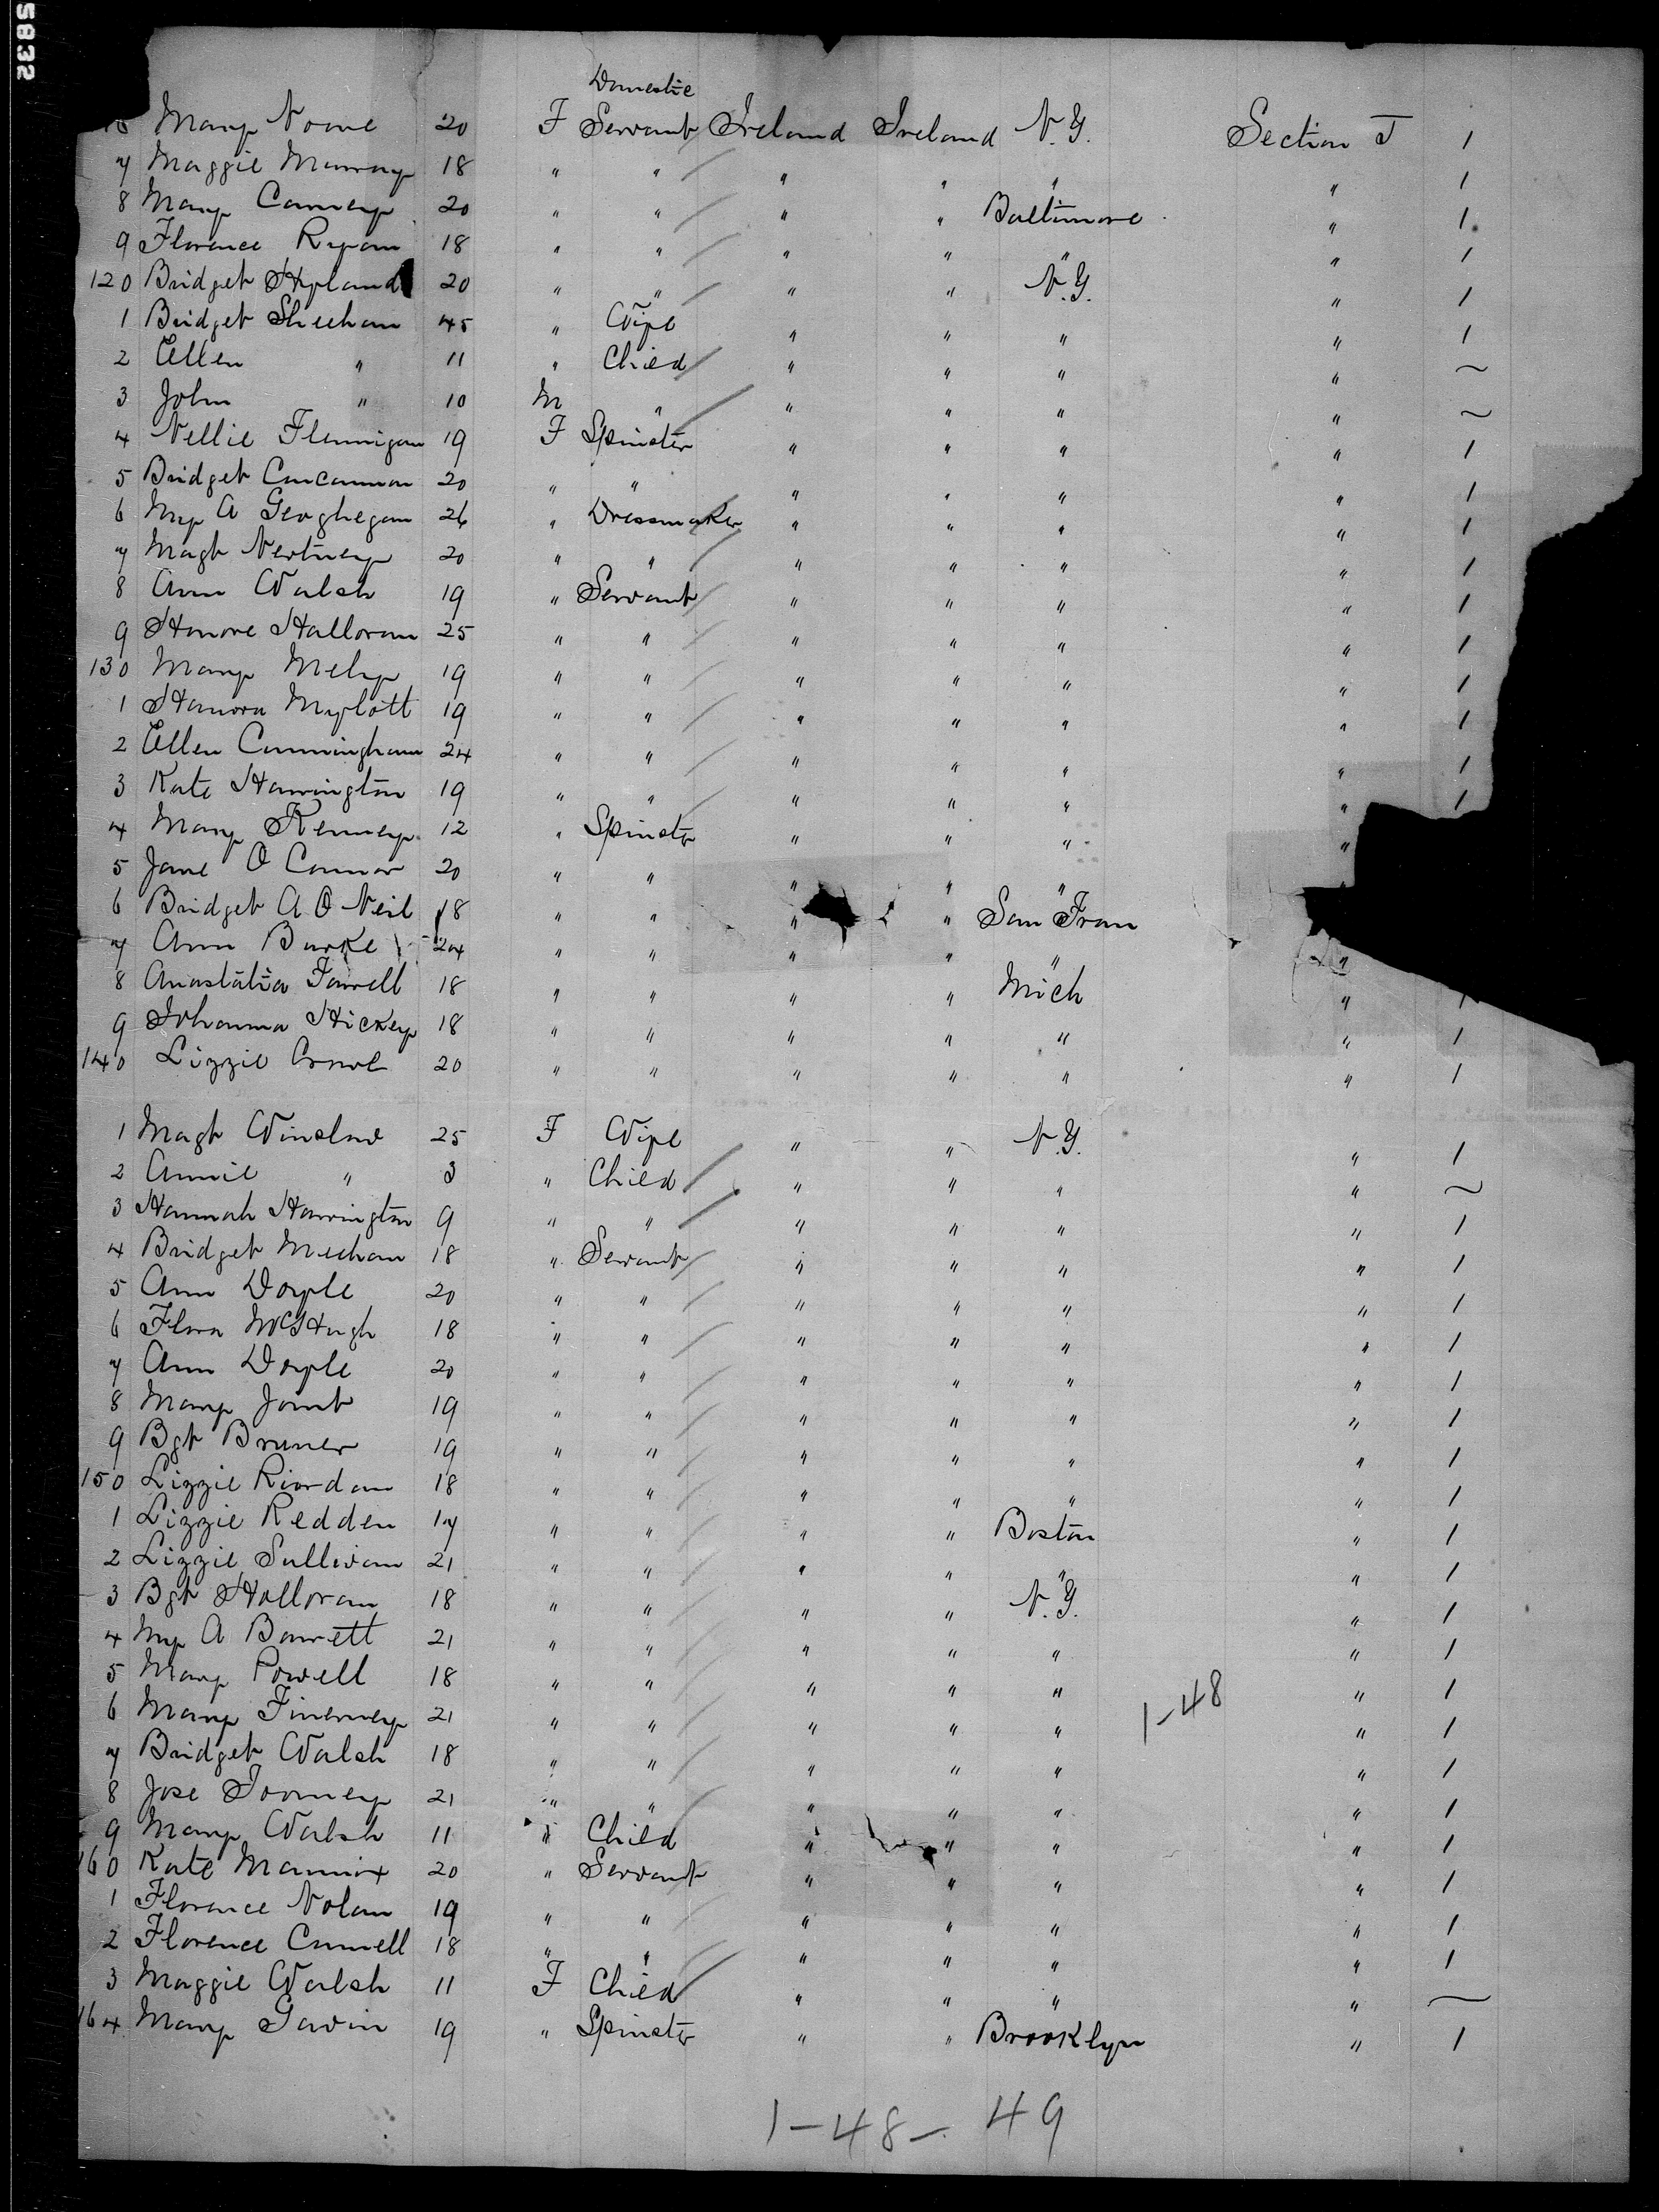 5832
Domestic
Mary Noone 20 F Servant Ireland Ireland N.Y. Section J 1
7 Maggie Murray 18 " " " " " " 1
8 Mary Canney 20 " " " " Baltimore " 1
9 Florence Ryan 18 " " " " " " 1
120 Bridget Hyland 20 " " " " N.Y. " 1
1 Bridget Sheehan 45 " Wife " " " " 1
2 Ellen " 11 " Child " " " " ~
3 John " 10 M " " " " " ~
4 Nellie Flannigan 19 F Spinster " " " " 1
5 Bridget Concannon 20 " " " " " " 1
6 My A Geoghegan 26 " Dressmaker " " " " 1
7 Magt Nertney 20 " " " " " " 1
8 Ann Walsh 19 " Servant " " " " 1
9 Honore Halloran 25 " " " " " " 1
130 Mary Mely 19 " " " " " " 1
1 Hanora Mylott 19 " " " " " " 1
2 Ellen Cunningham 24 " " " " " " 1
3 Kate Harrington 19 " " " " " " 1
4 Mary Kenney 12 " Spinster " " " "
5 Jane O Connor 20 " " " " "
6 Bridget A O Neil 18 " " " " San Fran
7 Ann Burke 24 " " " " " "
8 Anastatia Farrell 18 " " " " Mich " 1
9 Johanna Hickey 18 " " " " " " 1
140 Lizzie 20 " " " " " " 1
1 Magt Winslow 25 F Wife " " N.Y. " 1
2 Annie " 3 " Child " " " " ~
3 Hannah Harrington 9 " " " " " " 1
4 Bridget Meehan 18 " Servant " " " " 1
5 Ann Doyle 20 " " " " " " 1
6 Flora McHugh 18 " " " " " " 1
7 Ann Doyle 20 " " " " " " 1
8 Mary Joint 19 " " " " " " 1
9 Bgt Bruner 19 " " " " " " 1
150 Lizzie Riordan 18 " " " " " " 1
1 Lizzie Redden 17 " " " " Boston " 1
2 Lizzie Sullivan 21 " " " " " " 1
3 Bgt Halloran 18 " " " " N.Y. " 1
4 My A Barrett 21 " " " " " " 1
5 Mary Powell 18 " " " " " " 1
6 Mary Finerney 21 " " " " " 1-48 " 1
7 Bridget Walsh 18 " " " " " " 1
8 Jose Toomey 21 " " " " " " 1
9 Mary Walsh 11 " Child " " " " 1
160 Kate Mannix 20 " Servant " " " " 1
1 Florence Nolan 19 " " " " " " 1
2 Florence Connell 18 " " " " " " 1
3 Maggie Walsh 11 F Child " " " " ~
164 Mary Gavin 19 " Spinster " " Brooklyn " 1
1-48-. 49